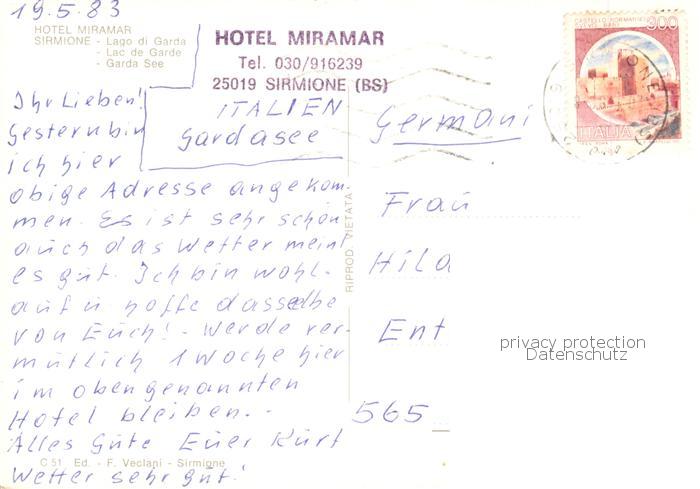 19.5.83
HOTEL MIRAMAR
SIRMIONE - Lago di Garda
- Lac de Garde
- Garda See
HOTEL MIRAMAR
Tel. 030/916239
25019 SIRMIONE (BS)
ITALIEN
Gardasee
Ihr Lieben!
Gestern bin
ich hier
obige Adresse angekom-
men. Es ist sehr schön
auch das Wetter meint
es gut. Ich bin wohl-
auf u hoffe dasselbe
von Euch! - Werde ver-
mutlich 1 Woche hier
im obengenannten
Hotel bleiben. -
Alles Gute Euer Kurt
C 51 Ed. - F. Veclani - Sirmione
Wetter sehr gut!
RIPROD. VIETATA
300
ITALIA
Germani
Frau
Hila
Ent
565
privacy protection
Datenschutz